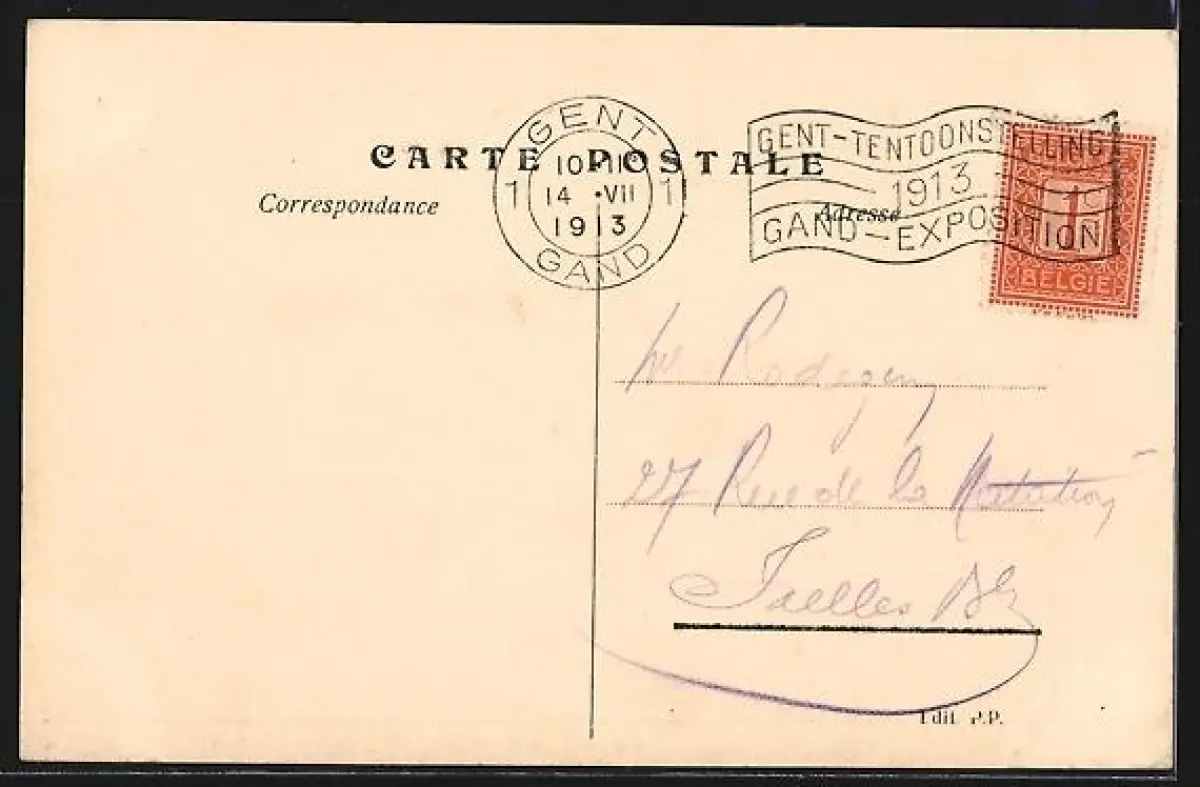 CARTE POSTALE
Correspondance
Adresse
GENT
1 10-11 1
14 • VII
1913
GAND
GENT-TENTOONSTELLING
1913
GAND-EXPOSITION
1c
BELGIE
27 Rue de la Natation
Ixelles
Edit P.P.